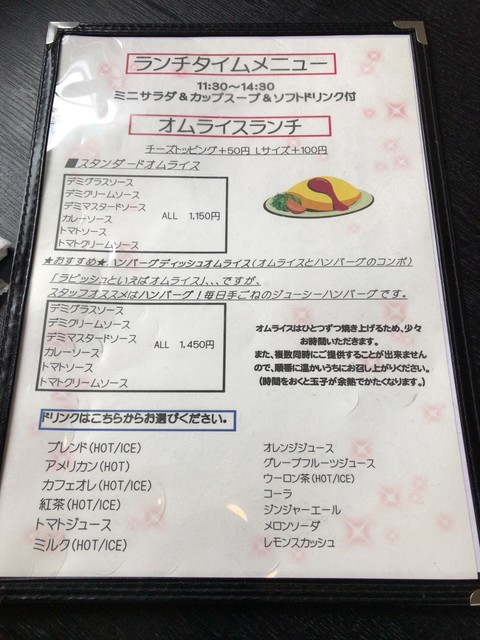 ランチタイムメニュー
11:30～14:30
ミニサラダ＆カップスープ＆ソフトドリンク付
オムライスランチ
チーズトッピング+50円 Lサイズ+100円
■スタンダードオムライス
デミグラスソース
デミクリームソース
デミマスタードソース
カレーソース
トマトソース
トマトクリームソース
ALL 1,150円
★おすすめ★ハンバーグディッシュオムライス(オムライスとハンバーグのコンボ)
「ラピッシュといえばオムライス」、、、ですが、
スタッフオススメはハンバーグ！毎日手ごねのジューシーハンバーグです。
デミグラスソース
デミクリームソース
デミマスタードソース
カレーソース
トマトソース
トマトクリームソース
ALL 1,450円
オムライスはひとつずつ焼き上げるため、少々
お時間いただきます。
また、複数同時にご提供することが出来ません
ので、順番に温かいうちにお召し上がりください。
(時間をおくと玉子が余熱でかたくなります。)
ドリンクはこちらからお選びください。
ブレンド(HOT/ICE)
アメリカン(HOT)
カフェオレ(HOT/ICE)
紅茶(HOT/ICE)
トマトジュース
ミルク(HOT/ICE)
オレンジジュース
グレープフルーツジュース
ウーロン茶(HOT/ICE)
コーラ
ジンジャーエール
メロンソーダ
レモンスカッシュ